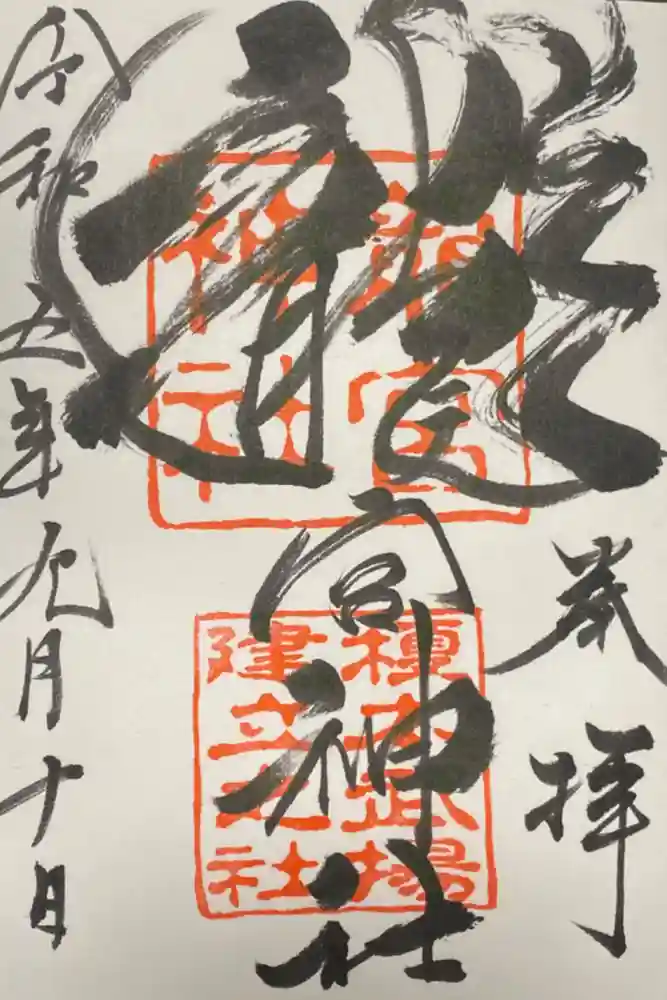 奉拝
龍
宮神社
龍宮
神社
榎本武揚
建立之社
令和五年九月十日